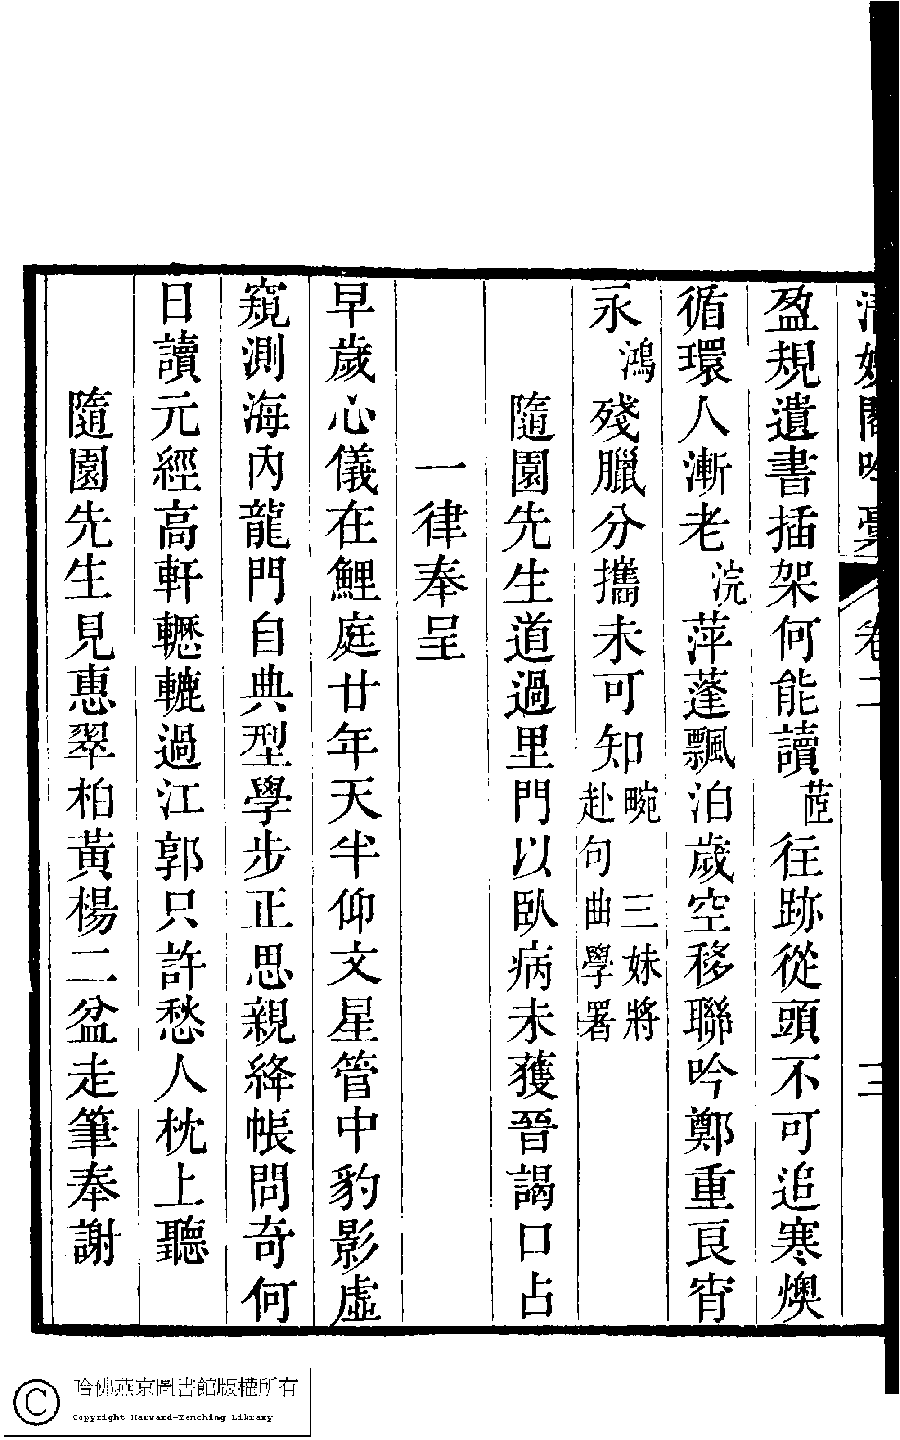 盈規遺書插架何能讀茝往跡從頭不可追寒燠
循環人漸老浣萍蓬飄泊歲空移聯吟鄭重良宵
永鴻殘臘分攜未可知畹三妹將赴句曲學署
隨園先生道過里門以臥病未獲晉謁口占
一律奉呈
早歲心儀在鯉庭廿年天半仰文星管中豹影虛
窺測海內龍門自典型學步正思親絳帳問奇何
日讀元經高軒轣轆過江郭只許愁人枕上聽
隨園先生見惠翠柏黃楊二盆走筆奉謝
哈佛燕京圖書館版權所有
Copyright Harvard-Yenching Library